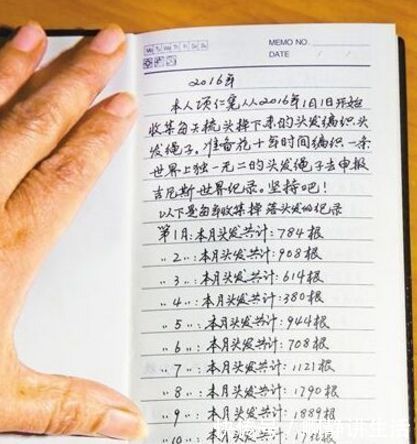 MEMO NO.
DATE / /
Mo Tu We Th Fr Sa Su
2016年
本人项仁宪从2016年1月1日开始
收集每天梳头掉下来的头发编织头
发绳子，准备花十年时间编织一条
世界上独一无二的头发绳子去申报
吉尼斯世界纪录。坚持吧！
以下是每当收集掉落头发的纪录
第1月：本月头发共计：784根
〃2〃：本月头发共计：908根
〃3〃：本月头发共计：614根
〃4〃：本月头发共计：380根
〃5〃：本月头发共计：944根
〃6〃：本月头发共计：708根
〃7〃：本月头发共计：1121根
〃8〃：本月头发共计：1790根
〃9〃：本月头发共计：1889根
〃10〃：本月头发共计：
讲生活